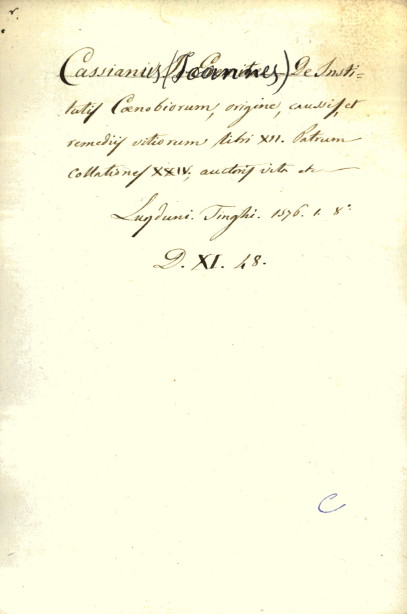 r.
Cassianus (Joannes) De Insti=
tutis Cœnobiorum, origine, caussis, et
remediis vitiorum libri XII. Patrum
collationes XXIV, auctoris vita etc
Lugduni. Tinghi. 1576. 1. 8°
D. XI. 48.
C